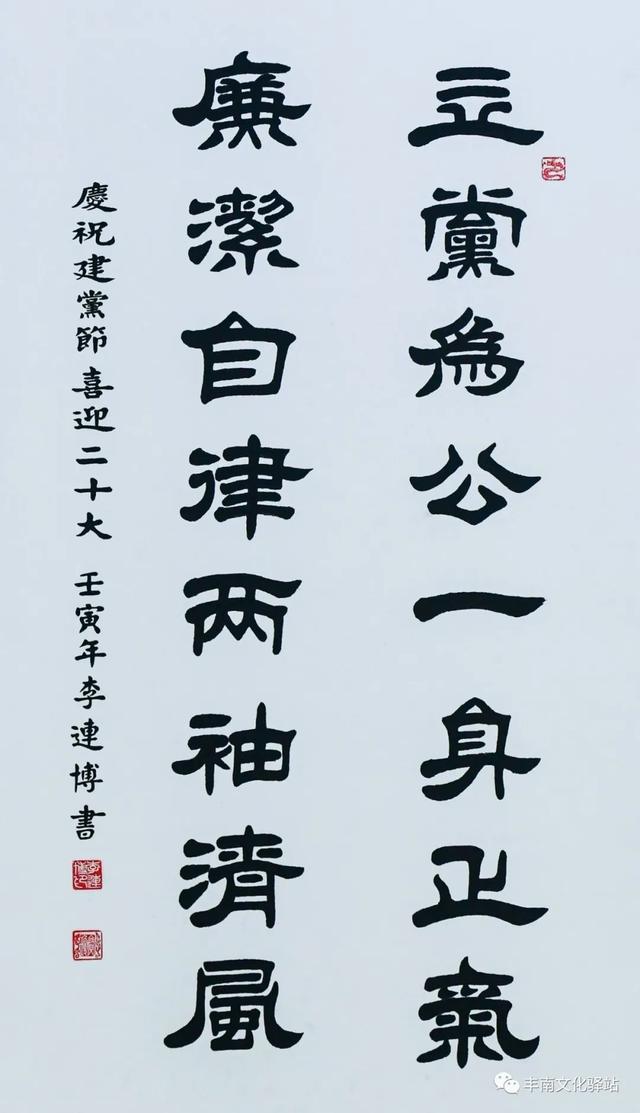 立黨為公一身正氣
廉潔自律兩袖清風
慶祝建黨節喜迎二十大 壬寅年李連博書
丰南文化驿站